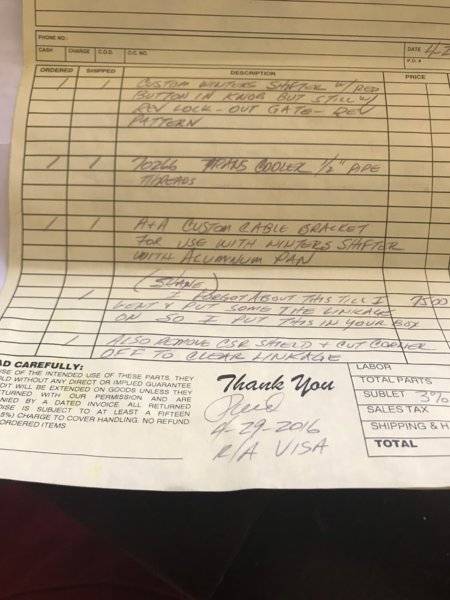 PHONE NO.
CASH CHARGE C.O.D. DATE 4-2
ORDERED SHIPPED DESCRIPTION PRICE
1 1 CUSTOM WINTERS SHIFTER W/ RED
BUTTON IN KNOB BUT STILL W/
REV LOCK-OUT GATE - REV
PATTERN
1 1 70266 TRANS COOLER 1/2" PIPE
THREADS
1 1 A+A CUSTOM CABLE BRACKET
FOR USE WITH WINTERS SHIFTER
WITH ALUMINUM PAN
1 I FORGOT ABOUT THIS TILL I
WENT & PUT SOME LIKE LINKAGE
ON SO I PUT THIS IN YOUR BOX
1 ALSO REMOVE CSR SHIELD & CUT CORNER
OFF TO CLEAR LINKAGE
AD CAREFULLY:
USE OF THE INTENDED USE OF THESE PARTS. THEY
LD WITHOUT ANY DIRECT OR IMPLIED GUARANTEE
DIT WILL BE EXTENDED ON GOODS UNLESS THEY
TURNED WITH OUR PERMISSION AND ARE
NIED BY A DATED INVOICE. ALL RETURNED
DISE IS SUBJECT TO AT LEAST A FIFTEEN
5%) CHARGE TO COVER HANDLING. NO REFUND
ORDERED ITEMS
Thank You
4-29-2016
R/A VISA
LABOR
TOTAL PARTS
SUBLET 3%
SALES TAX
SHIPPING & H
TOTAL